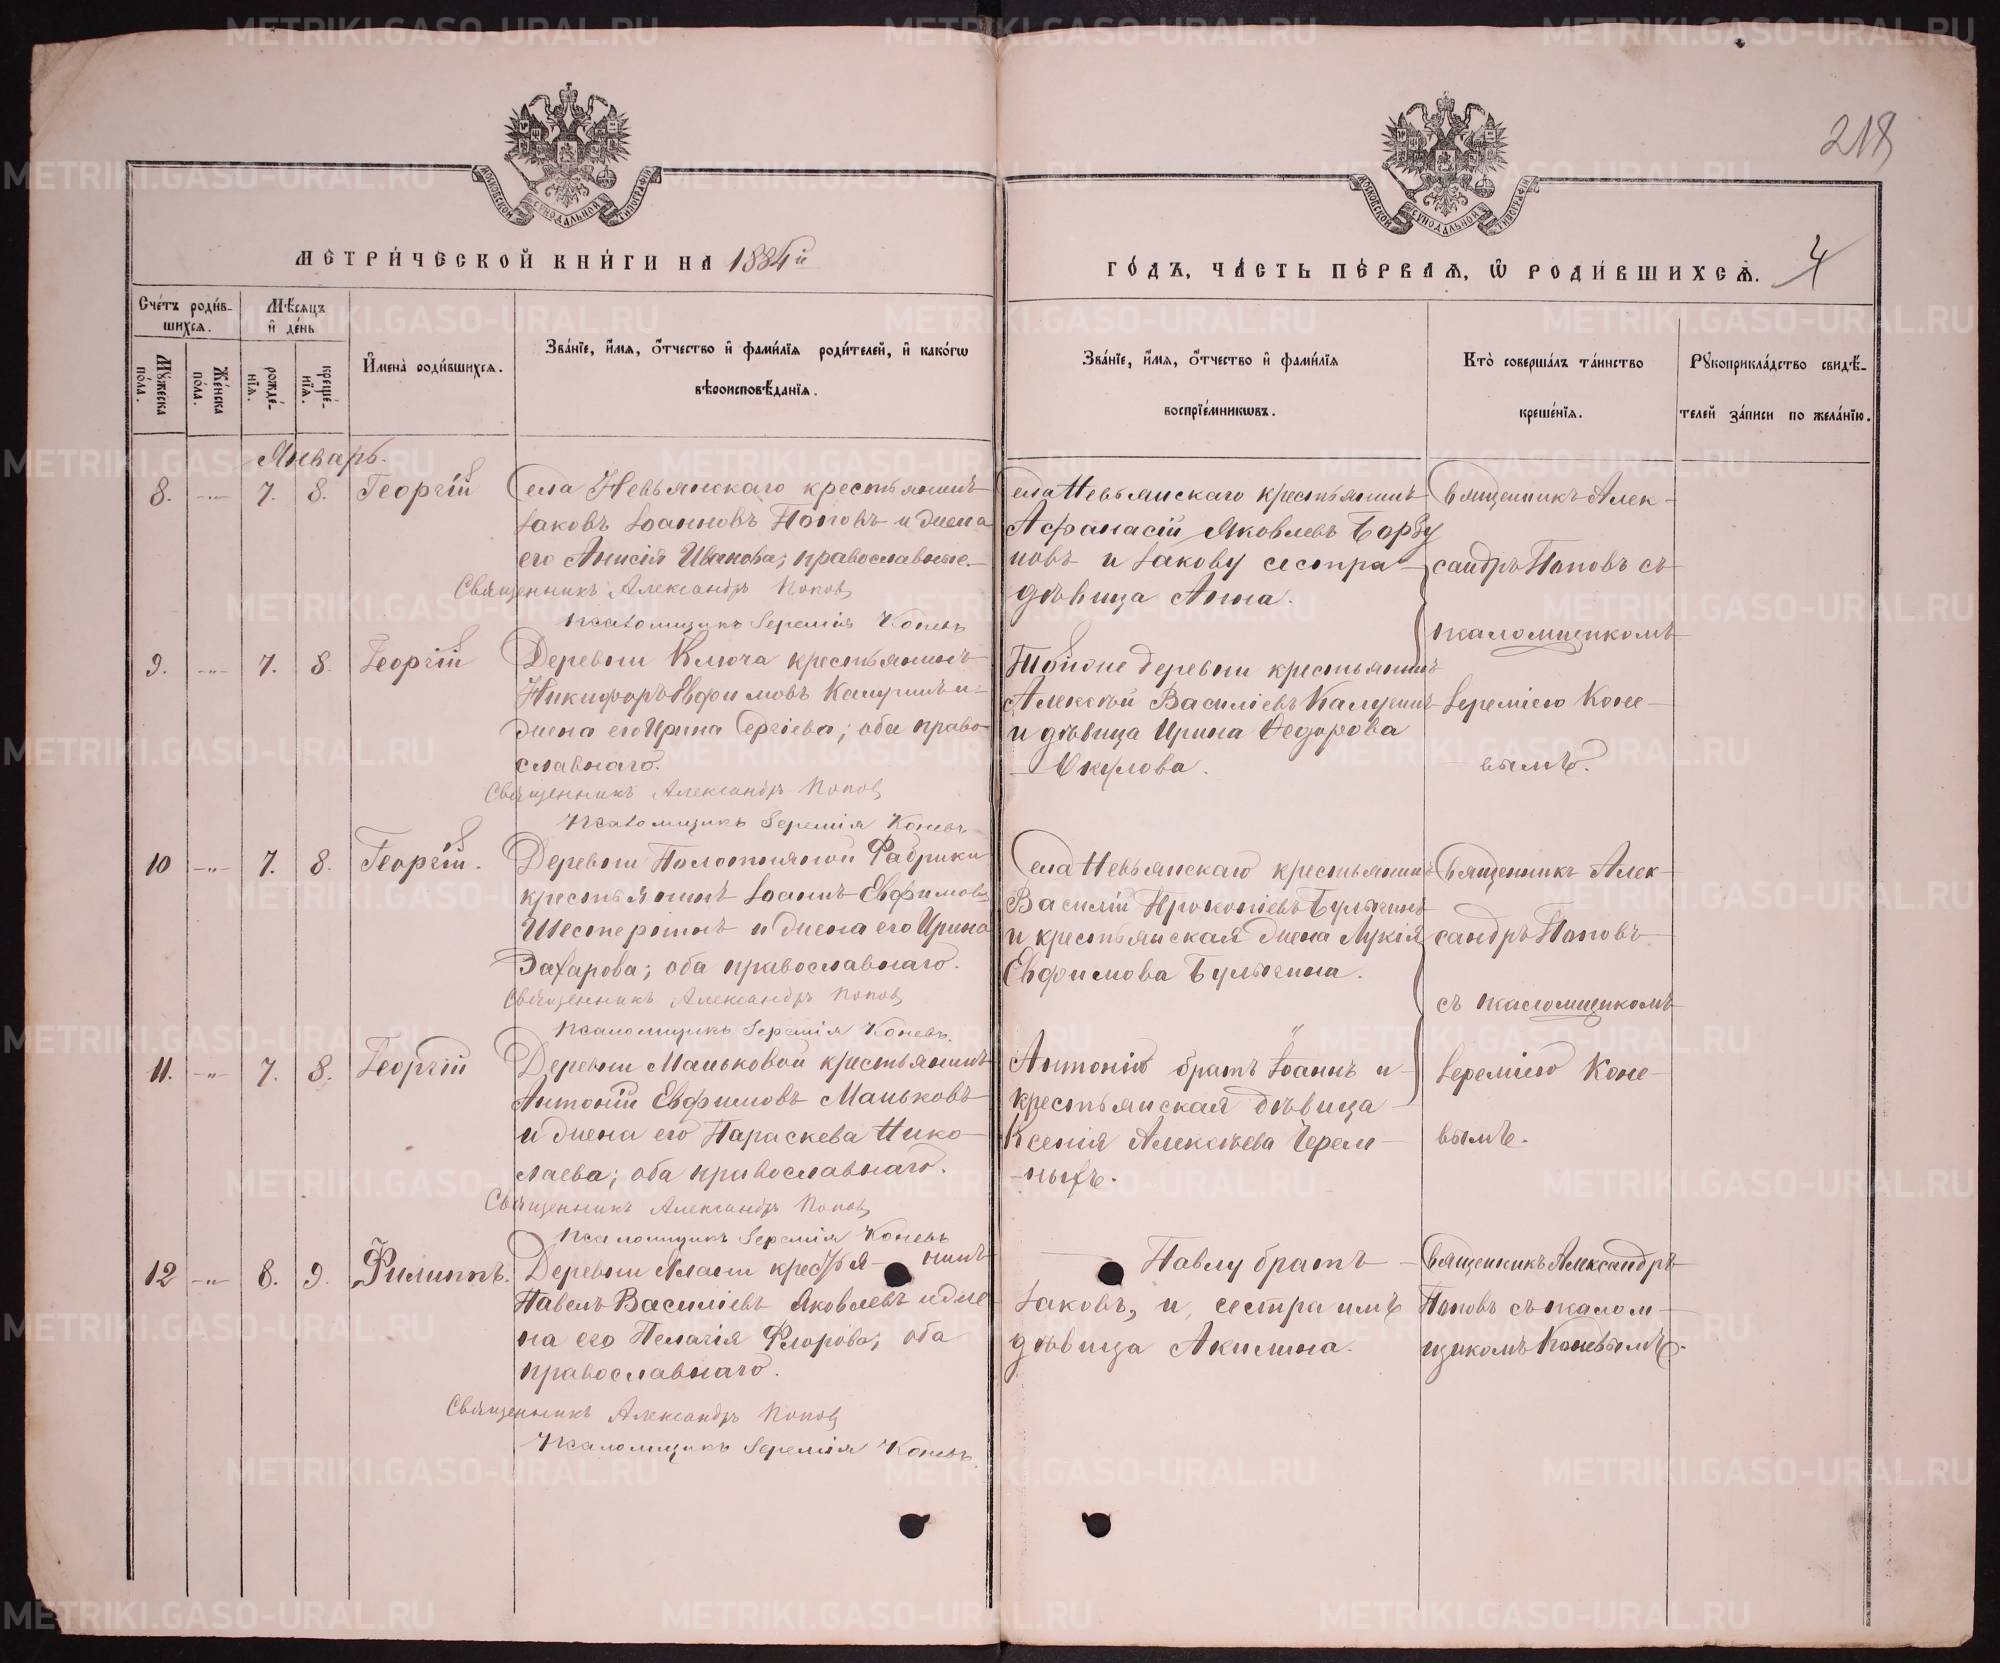 218
МОСКОВСКОЙ СУНОДАЛЬНОЙ ТИПОГРАФІИ
МОСКОВСКОЙ СУНОДАЛЬНОЙ ТИПОГРАФІИ
МЕТРИ́ЧЕСКОЙ КНИ́ГИ НА 1884й
ГО́ДЪ, ЧА́СТЬ ПЕ́РВАЯ, Ѿ РОДИ́ВШИХСЯ. 4
Сче́тъ роди́в-
шихся.
Мѣ́сяцъ
и҆ де́нь
Му́жеска
по́ла.
Же́нска
по́ла.
рожде́-
нїя.
креще́-
нїя.
И҆мена̀ роди́вшихся.
Зва́нїе, и҆́мя, ѻ҆́тчество и҆ фами́лїя роди́телей, и҆ како́гѡ
вѣроисповѣ́данїя.
Зва́нїе, и҆́мя, ѻ҆́тчество и҆ фами́лїя
воспрїе́мниковъ.
Кто̀ соверша́лъ та́инство
креще́нїя.
Рукоприкла́дство свидѣ́-
телей за́писи по жела́нїю.
Январь.
8. -„- 7. 8. Георгій
Села Невьянскаго крестьянинъ
Іаковъ Іоанновъ Поповъ и жена
его Анисія Иванова; православные.
Священникъ Александръ Поповъ
Псаломщикъ Іеремія Коневъ
Села Невьянскаго крестьянинъ
Афанасій Яковлевъ Борзу
новъ и Іакову сестра
дѣвица Анна.
Священникъ Алек-
сандръ Поповъ съ
псаломщикомъ
Іереміею Коне-
вымъ.
9. -„- 7. 8. Георгій
Деревни Ключа крестьянинъ
Никифоръ Евфимовъ Калугинъ и
жена его Ирина Сергіева; оба право-
славнаго.
Священникъ Александръ Поповъ
Псаломщикъ Іеремія Коневъ
Тойже деревни крестьянинъ
Алексѣй Василіевъ Калугинъ
и дѣвица Ирина Ѳедорова
Окулова.
10 -„- 7. 8. Георгій.
Деревни Полотняной Фабрики
крестьянинъ Іоаннъ Евфимовъ
Шестеринъ и жена его Ирина
Захарова; оба православнаго.
Священникъ Александръ Поповъ
Псаломщикъ Іеремія Коневъ.
Села Невьянскаго крестьянинъ
Василій Прокопіевъ Булыгинъ
и крестьянская жена Лукія
Евфимова Булыгина.
Священникъ Алек-
сандръ Поповъ
съ псаломщикомъ
Іереміею Коне-
вымъ.
11. -„- 7. 8. Георгій
Деревни Маньковой крестьянинъ
Антоній Евфимовъ Маньковъ
и жена его Параскева Нико-
лаева; оба православнаго.
Священникъ Александръ Поповъ
Псаломщикъ Іеремія Коневъ
Антонію братъ Іоаннъ и
крестьянская дѣвица
Ксенія Алексѣева Черем-
ныхъ.
12 -„- 8. 9. Филиппъ.
Деревни Алани крестья- нинъ
Павелъ Василіевъ Яковлевъ и же
на его Пелагія Флорова; оба
православнаго.
Священникъ Александръ Поповъ
Псаломщикъ Іеремія Коневъ.
Павлу братъ
Іаковъ, и сестра имъ
дѣвица Акилина.
Священникъ Александръ
Поповъ съ псалом-
щикомъ Коневымъ.